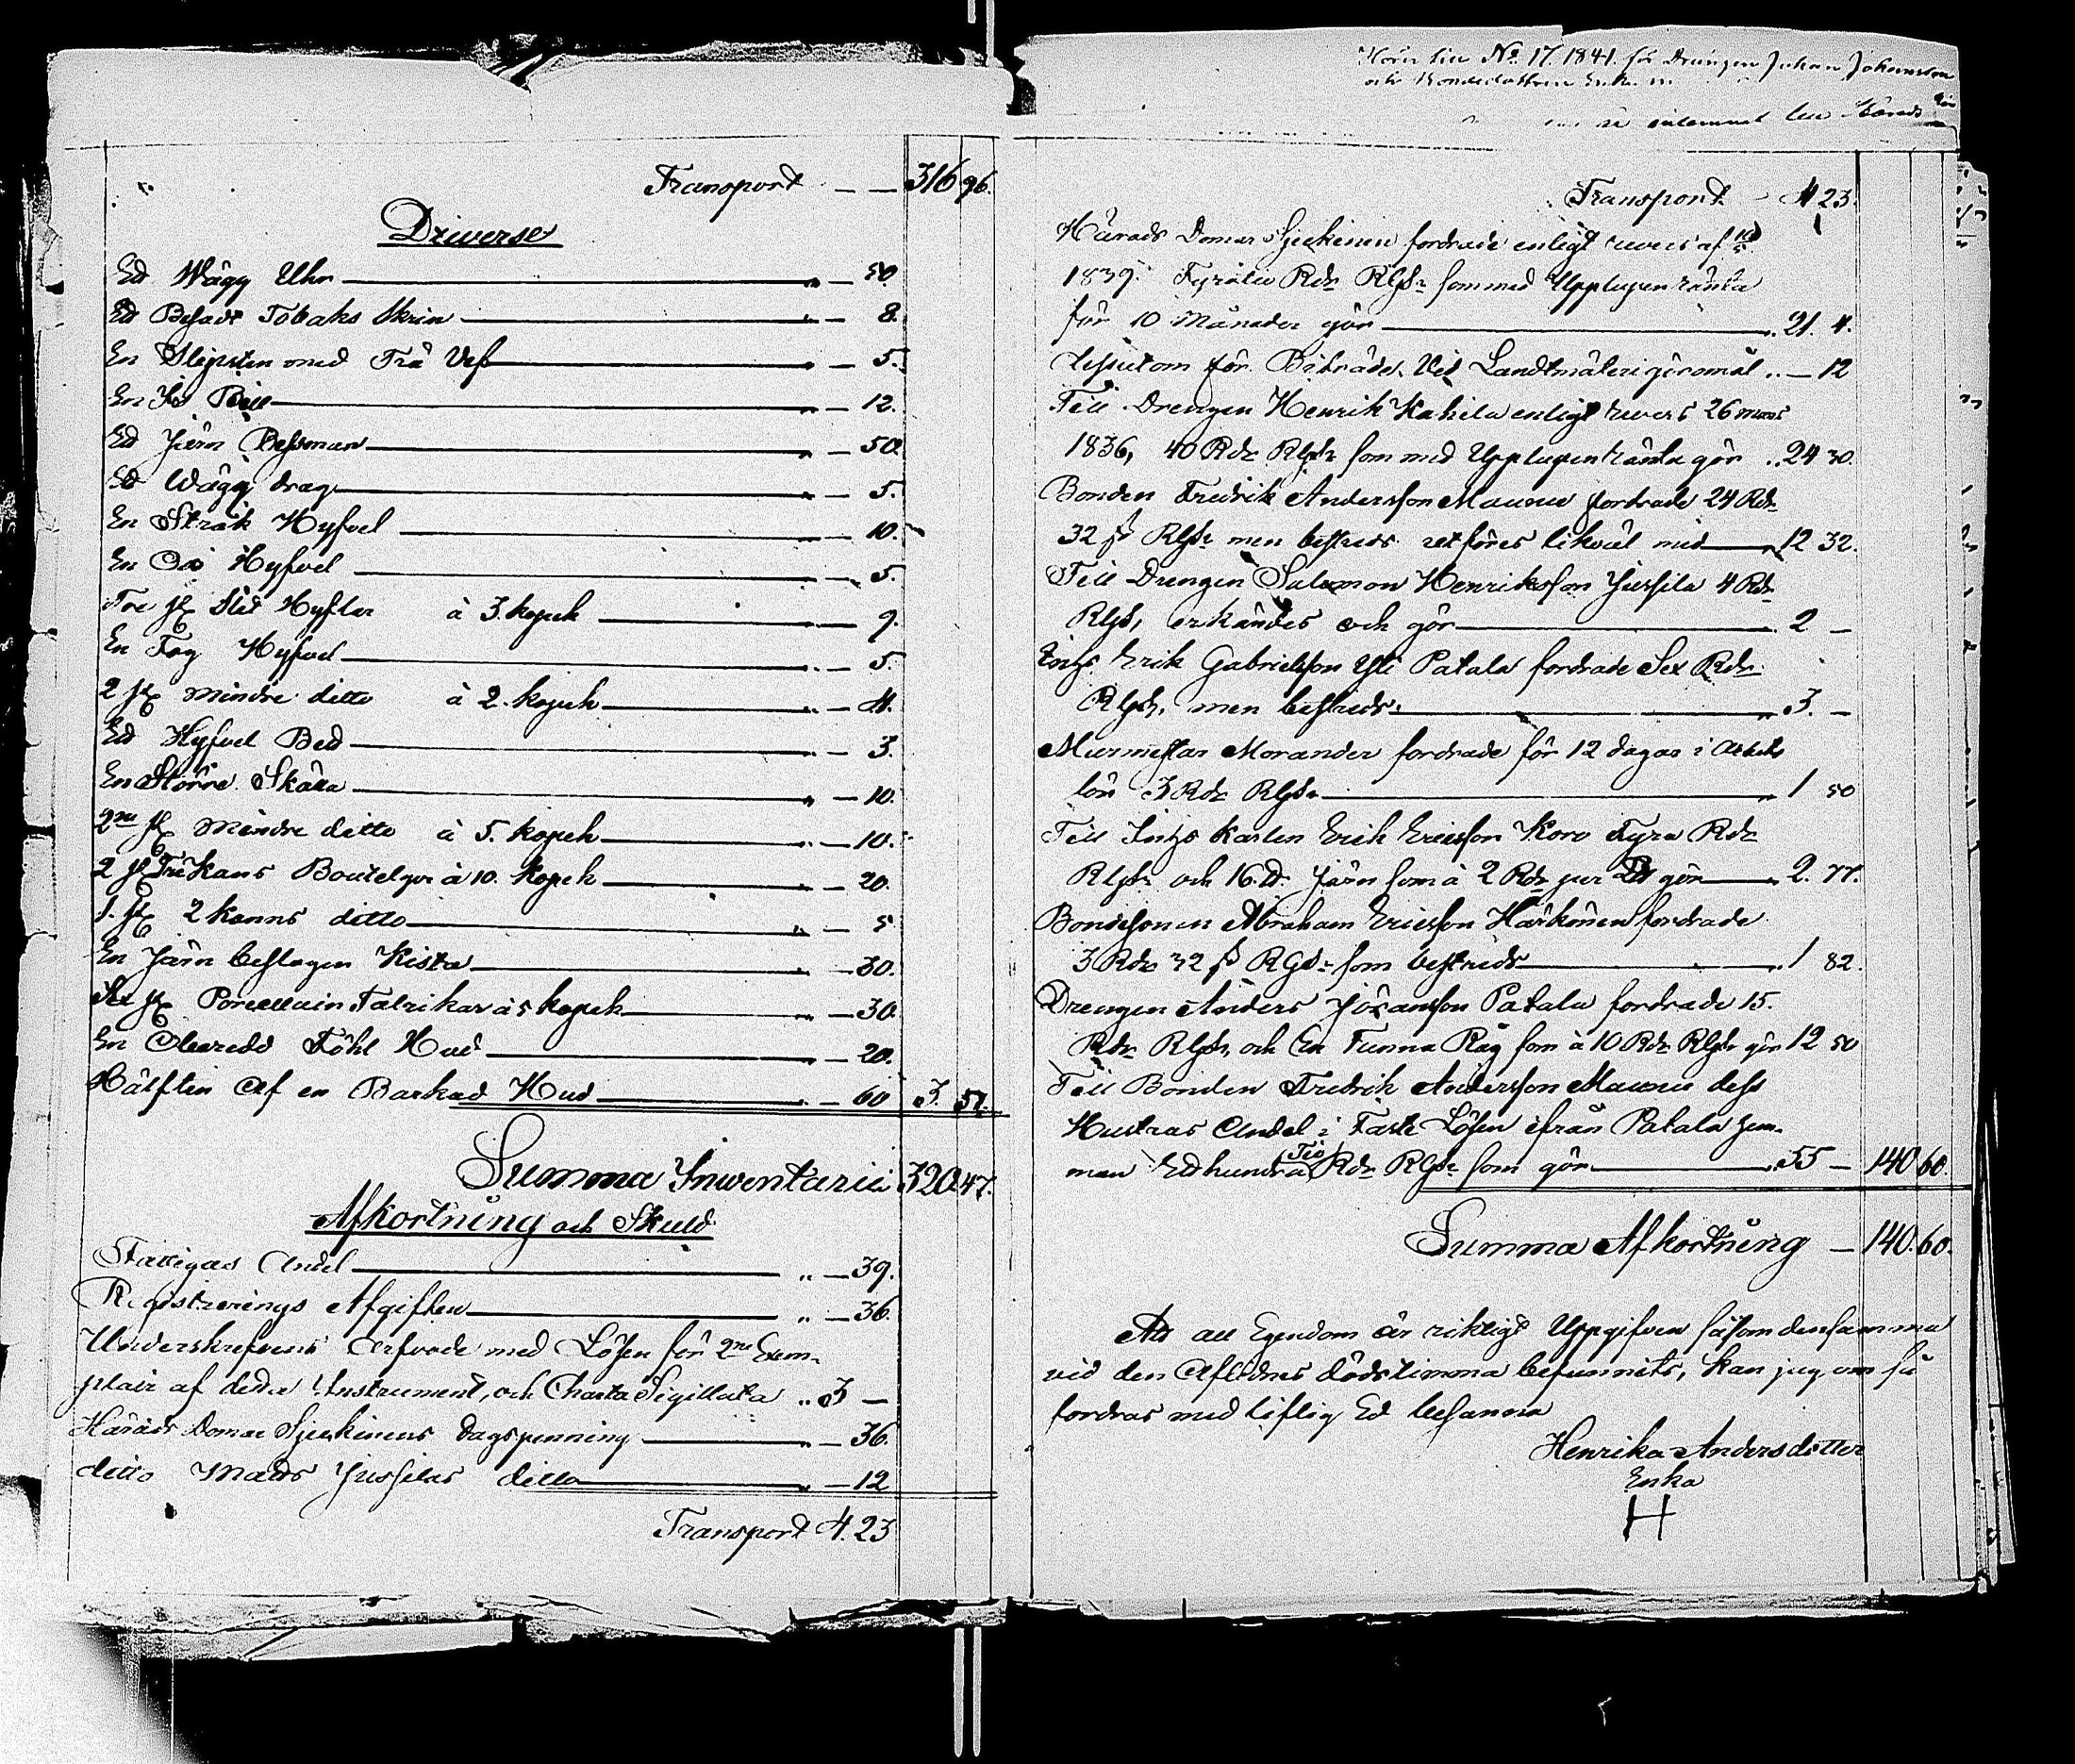 Transport — — 316 96.
Diverse
Ett Wägg Uhr — 50.
Ett Tobaks Skrin — 8.
En Slipsten med Trä Vef — 5.
En Is Bill — 12.
Ett Järn Bessman — 50.
Ett Wägg drag — 5.
En Stråk Hyfvel — 10.
En Hyfvel — 5.
Tre st Slät Hyflar à 3 kopek — 9.
En Fog Hyfvel — 5.
2 st mindre ditto à 2. kopek — 4.
Ett Hyfvel Bed — 3.
En Större Skåla — 10.
2ne st mindre ditto à 5. kopek — 10.
2 st Kans Boutelger à 10. kopek — 20.
1. st 2 kanns ditto — 5
En Järn beslagen Kista — 30.
Sex st Porcellain Talrikar à 5 kopek — 30.
En Föhl Hud — 20.
Hälften af en Barkad Hud — 60 3. 51.
Summa Inventarii 320. 47.
Afkortning och Skuld
Fattigas Andel — 39.
Registrerings Afgiften — 36.
Underskrefvens Arfvode med Lösen för 2ne Exem-
plair af detta Instrument, och Charta Sigillata „ 3 —
Härads Domar Sjeckinens dagspenning — 36.
ditto Matts Jussilas ditto — 12
Transport 4. 23
No 17. 1841. för Drängen Johan Johansson
Transport — 4 23.
Härads Domar Sjeckinen fordrade enligt revers af
1839. Fyratio Rdr RGds som med Upplupen ränta
för 10 Månader gör — 21. 4.
dessutom för Biträde Vid Landtmäteri göromål „ — 12
Till Drengen Henrik Kahila enligt revers 26 mars
1836, 40 Rdr RGds som med Upplupen ränta gör „ 24 30.
Bonden Fredrik Andersson Maunu fordrade 24 Rdr
32 s RGds men bestreds likväl med — 12 32.
Till Drengen Salomon Henriksson Jussila 4 Rdr
RGds, erkändes och gör — 2 —
Erik Gabrielsson Yli Patala fordrade Sex Rdr
RGds, men bestreds — 3. —
Murmestar Morander fordrade för 12 dagar i Arbets
lön 3 Rdr RGds — 1 50
Till Karlen Erich Ericsson Koro Fyra Rdr
RGds och 16. ℔ Järn som à 2 Rdr per gör — 2. 77.
Bondesonen Abraham Ericsson Härkönen fordrade
3 Rdr 32 s RGds som bestreds — 1 82.
Drengen Anders Jöransson Patala fordrade 15.
Rdr RGds, och En Tunna Råg som à 10 Rdr RGds gör 12 50
Till Bonden Fredrik Andersson Maunu dess
Hustrus Andel i Faste Lösen ifrån Patala hem-
man Etthundra Tio Rdr RGds som gör — 55 — 140 60.
Summa Afkortning — 140. 60.
Att all Egendom är riktigt Uppgifven såsom densamma
vid den Aflednes dödstimma befunnits, kan jag om så
fordras med liflig Ed besanna
Henrika Andersdotter
Enka
H